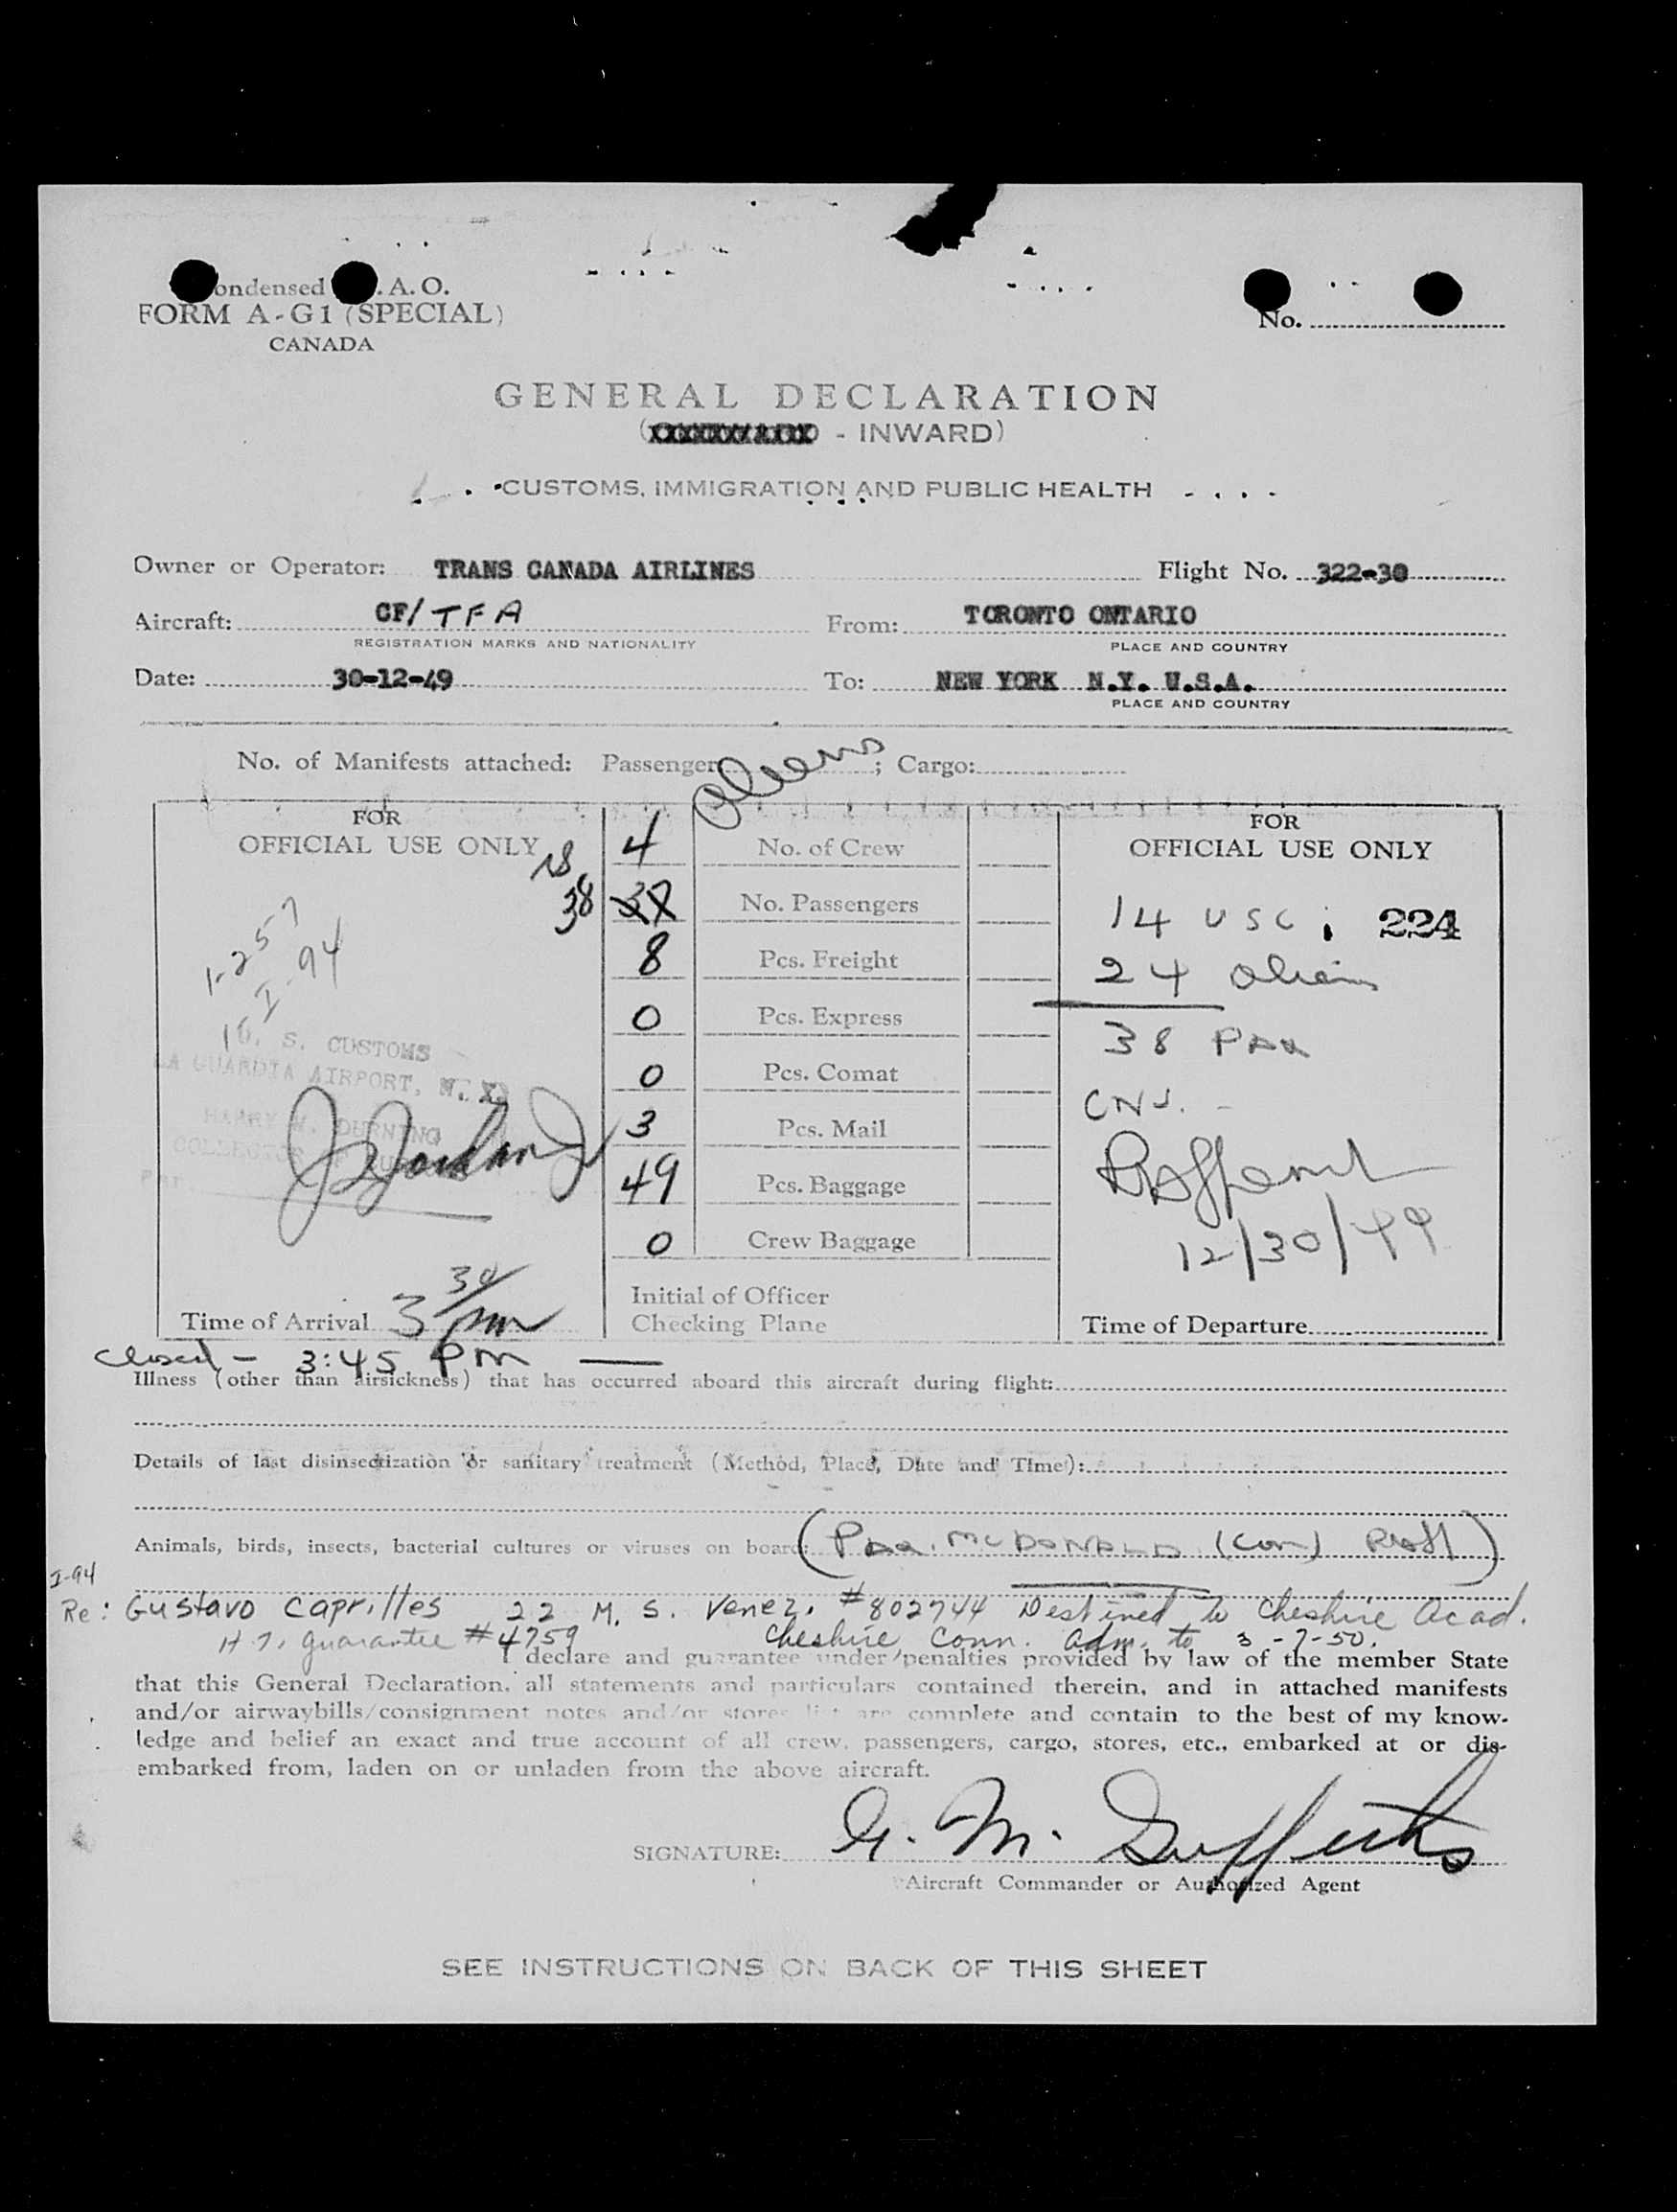 ondensed .A.O.
FORM A-G1 (SPECIAL)
CANADA
No.
GENERAL DECLARATION
( - INWARD)
CUSTOMS, IMMIGRATION AND PUBLIC HEALTH
Owner or Operator: TRANS CANADA AIRLINES Flight No. 322-30
Aircraft: CF/TFA From: TORONTO ONTARIO
REGISTRATION MARKS AND NATIONALITY PLACE AND COUNTRY
Date: 30-12-49 To: NEW YORK N.Y. U.S.A.
PLACE AND COUNTRY
No. of Manifests attached: Passenger ; Cargo:
Aliens
FOR
OFFICIAL USE ONLY
1-257
I-94
U. S. CUSTOMS
LA GUARDIA AIRPORT, N. Y.
HARRY M. DURNING
COLLECTOR
Time of Arrival 3 30/pm
4 No. of Crew
38 37 No. Passengers
8 Pcs. Freight
0 Pcs. Express
0 Pcs. Comat
3 Pcs. Mail
49 Pcs. Baggage
0 Crew Baggage
Initial of Officer
Checking Plane
FOR
OFFICIAL USE ONLY
14 USC 224
24 Aliens
38 Pax
12/30/49
Time of Departure
Closed - 3:45 PM
Illness (other than airsickness) that has occurred aboard this aircraft during flight:
Details of last disinsectization or sanitary treatment (Method, Place, Date and Time):
Animals, birds, insects, bacterial cultures or viruses on board: (Pax. McDONALD (Con)
I-94
Re: Gustavo Caprilles 22 M. S. Venez. #802744 Destined to Cheshire Acad.
guarantee #4759 Cheshire Conn. Adm. to 3-7-50.
I declare and guarantee under penalties provided by law of the member State
that this General Declaration, all statements and particulars contained therein, and in attached manifests
and/or airwaybills/consignment notes and/or stores list are complete and contain to the best of my know-
ledge and belief an exact and true account of all crew, passengers, cargo, stores, etc., embarked at or dis-
embarked from, laden on or unladen from the above aircraft.
SIGNATURE: G. M.
Aircraft Commander or Authorized Agent
SEE INSTRUCTIONS ON BACK OF THIS SHEET